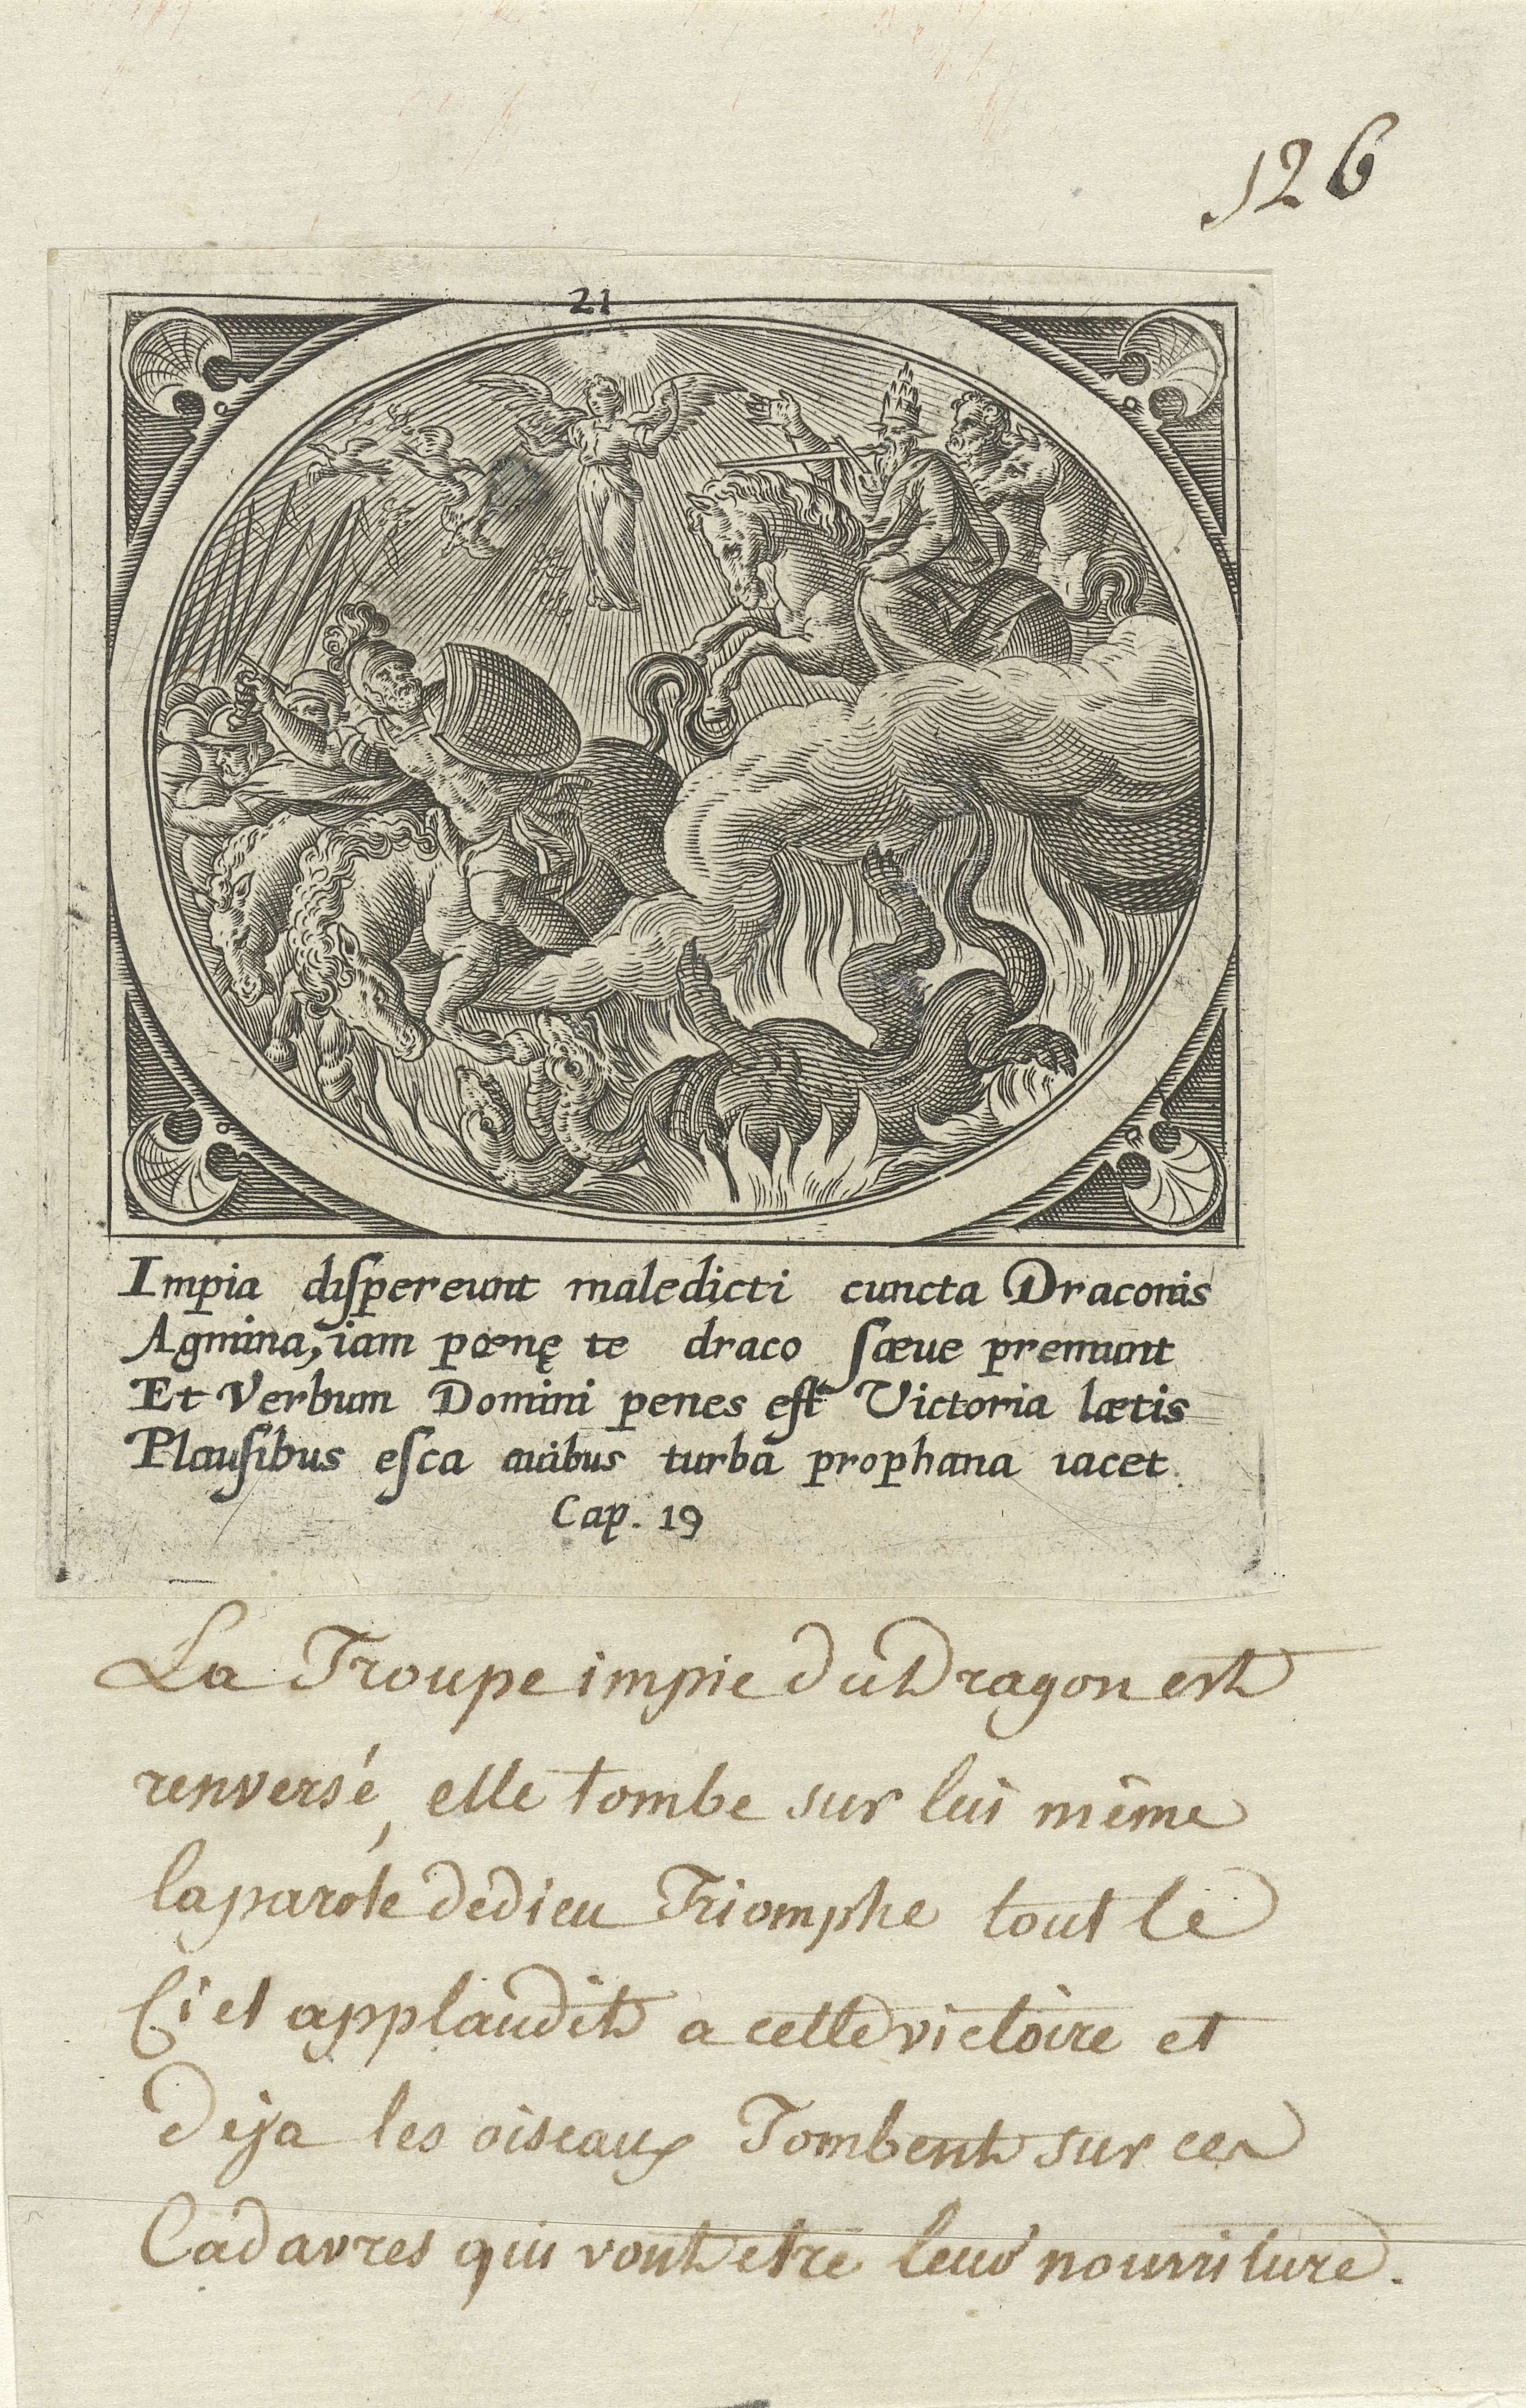 126
21
Impia diſpereunt maledicti cuncta Draconis
Agmina, iam pœnę te draco ſæue premunt
Et Verbum Domini penes eſt Victoria lætis
Plauſibus eſca auibus turba prophana iacet.
Cap. 19
La Troupe impie du Dragon est
renversé, elle tombe sur lui même
la parole de dieu Triomphe tout le
Ciel applaudit a cette victoire et
deja les oiseaux Tombent sur ces
Cadavres qui vont etre leur nourriture.